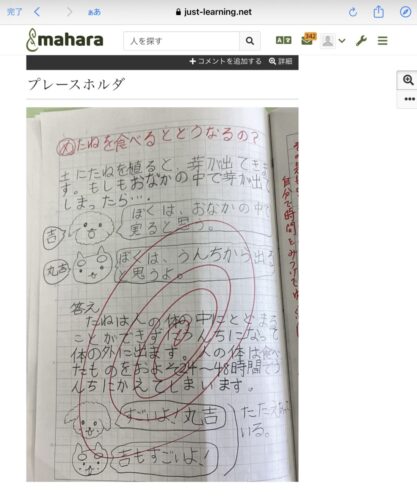 完了
ぁあ
just-learning.net
mahara
人を探す
342
コメントを追加する
詳細
プレースホルダ
め たねを食べるとどうなるの?
土にたねを植ると、芽が出てきま
す。もしもおなかの中で芽が出て
しまったら…。
吉
ぼくは、おなかの中で
実ると思う。
丸吉
ぼくは、うんちから出る
と思うよ。
答え
たねは人の体の中にとどまる
ことができずにうんちになって
体の外に出ます。人の体は食べ
たものをおよそ24〜48時間でう
んちにかえてしまいます。
すごいよ!丸吉
吉もすごいよ!
たたえあって
いる。
自分で時間をみつけて